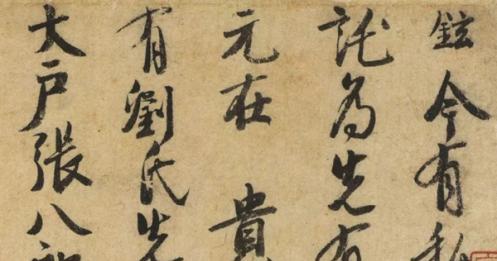 鉉今有私
託為先有
元在　貴
有劉氏先
大戶張八